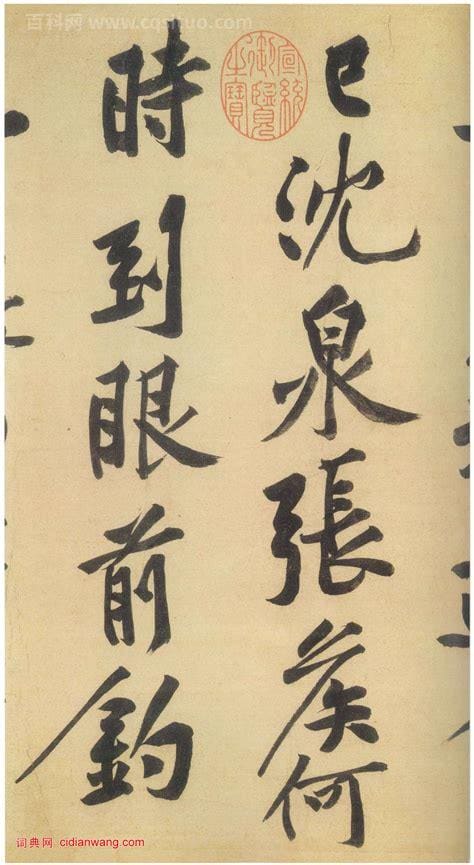 百科网 www.cqsituo.com
已沈泉張侯何
宣統御覽之寶
時到眼前釣
词典网 cidianwang.com